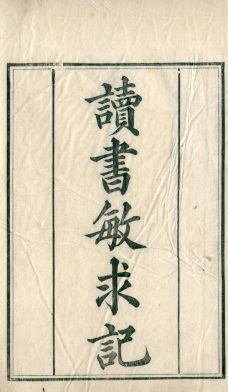 讀書敏求記